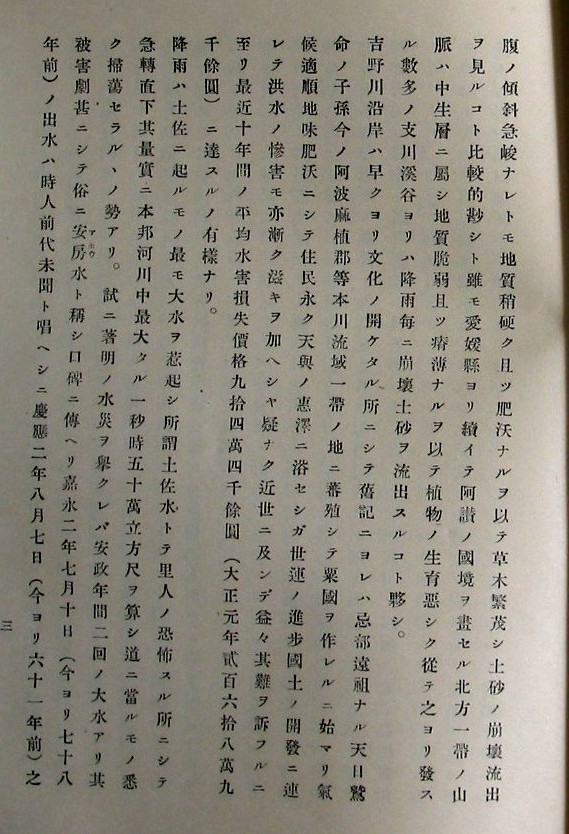 腹ノ傾斜急峻ナレトモ地質稍硬ク且ツ肥沃ナルヲ以テ草木繁茂シ土砂ノ崩壞流出
ヲ見ルコト比較的尠シト雖モ愛媛縣ヨリ續イテ阿讃ノ國境ヲ畫セル北方一帶ノ山
脈ハ中生層ニ屬シ地質脆弱且ツ瘠薄ナルヲ以テ植物ノ生育惡シク從テ之ヨリ發ス
ル數多ノ支川溪谷ヨリハ降雨每ニ崩壞土砂ヲ流出スルコト夥シ。
吉野川沿岸ハ早クヨリ文化ノ開ケタル所ニシテ舊記ニヨレハ忌部遠祖ナル天日鷲
命ノ子孫今ノ阿波麻植郡等本川流域一帶ノ地ニ蕃殖シテ粟國ヲ作レルニ始マリ氣
候適順地味肥沃ニシテ住民永ク天與ノ惠澤ニ浴セシガ世運ノ進步國土ノ開發ニ連
レテ洪水ノ慘害モ亦漸ク滋キヲ加ヘシヤ疑ナク近世ニ及ンデ益々其難ヲ訴フルニ
至リ最近十年間ノ平均水害損失價格九拾四萬四千餘圓（大正元年貳百六拾八萬九
千餘圓）ニ達スルノ有樣ナリ。
降雨ハ土佐ニ起ルモノ最モ大水ヲ惹起シ所謂土佐水トテ里人ノ恐怖スル所ニシテ
急轉直下其量實ニ本邦河川中最大タル一秒時五十萬立方尺ヲ算シ道ニ當ルモノ悉
ク掃蕩セラルヽノ勢アリ。試ニ著明ノ水災ヲ擧クレバ安政年間二回ノ大水アリ其
被害劇甚ニシテ俗ニ安房水ト稱シ口碑ニ傳ヘリ嘉永二年七月十日（今ヨリ七十八
アホウ
年前）ノ出水ハ時人前代未聞ト唱ヘシニ慶應二年八月七日（今ヨリ六十一年前）之
三